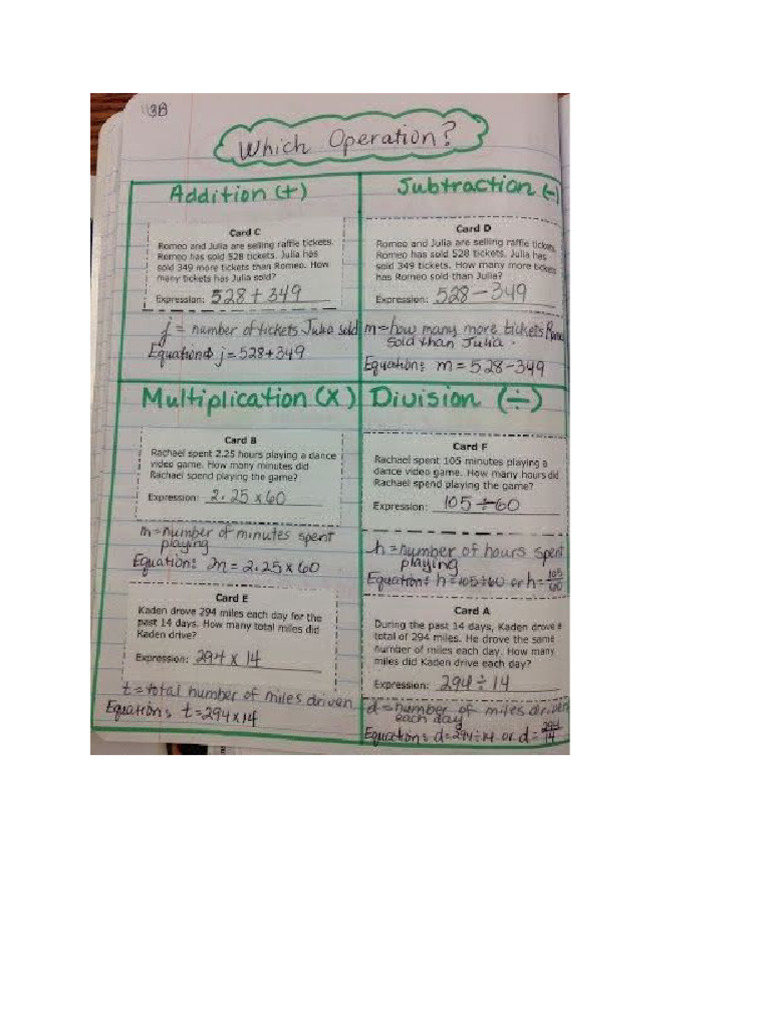 13B
Which Operation?
Addition (+)
Card C
Romeo and Julia are selling raffle tickets.
Romeo has sold 528 tickets. Julia has
sold 349 more tickets than Romeo. How
many tickets has Julia sold?
Expression: 528 + 349
j = number of tickets Julia sold
Equation: j = 528 + 349
Subtraction (-)
Card D
Romeo and Julia are selling raffle tickets.
Romeo has sold 528 tickets. Julia has
sold 349 tickets. How many more tickets
has Romeo sold than Julia?
Expression: 528 - 349
m = how many more tickets
sold than Julia.
Equation: m = 528 - 349
Multiplication (x)
Card B
Rachael spent 2.25 hours playing a dance
video game. How many minutes did
Rachael spend playing the game?
Expression: 2.25 x 60
m = number of minutes spent
playing
Equation: m = 2.25 x 60
Card E
Kaden drove 294 miles each day for the
past 14 days. How many total miles did
Kaden drive?
Expression: 294 x 14
t = total number of miles driven
Equation: t = 294 x 14
Division (÷)
Card F
Rachael spent 105 minutes playing a
dance video game. How many hours did
Rachael spend playing the game?
Expression: 105 ÷ 60
h = number of hours spent
playing
Equation: h = 105 ÷ 60 or h = 105/60
Card A
During the past 14 days, Kaden drove a
total of 294 miles. He drove the same
number of miles each day. How many
miles did Kaden drive each day?
Expression: 294 ÷ 14
d = number of miles driven
each day
Equation: d = 294 ÷ 14 or d = 294/14